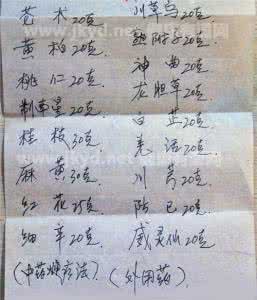 苍术20克 川草乌20克
黄柏20克 熟附子20克
桃仁20克 神曲20克
制草星20克 龙胆草20克
桂枝30克 白芷20克
麻黄30克 羌活20克
红花25克 川芎20克
细辛20克 防己20克
威灵仙20克
(中药燎疗法) (外用药)
www.jkyd.net